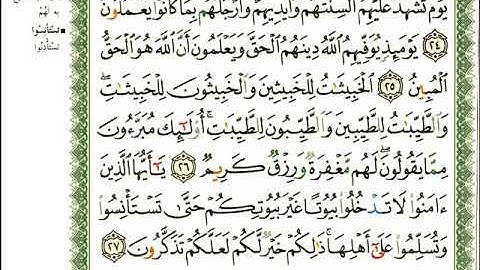 يَوْمَ تَشْهَدُ عَلَيْهِمْ أَلْسِنَتُهُمْ وَأَيْدِيهِمْ وَأَرْجُلُهُم بِمَا كَانُوا۟ يَعْمَلُونَ
٢٤ يَوْمَئِذٍ يُوَفِّيهِمُ ٱللَّهُ دِينَهُمُ ٱلْحَقَّ وَيَعْلَمُونَ أَنَّ ٱللَّهَ هُوَ ٱلْحَقُّ
ٱلْمُبِينُ ٢٥ ٱلْخَبِيثَٰتُ لِلْخَبِيثِينَ وَٱلْخَبِيثُونَ لِلْخَبِيثَٰتِۖ
وَٱلطَّيِّبَٰتُ لِلطَّيِّبِينَ وَٱلطَّيِّبُونَ لِلطَّيِّبَٰتِۚ أُو۟لَٰٓئِكَ مُبَرَّءُونَ
مِمَّا يَقُولُونَۖ لَهُم مَّغْفِرَةٌ وَرِزْقٌ كَرِيمٌ ٢٦ يَٰٓأَيُّهَا ٱلَّذِينَ
ءَامَنُوا۟ لَا تَدْخُلُوا۟ بُيُوتًا غَيْرَ بُيُوتِكُمْ حَتَّىٰ تَسْتَأْنِسُوا۟
وَتُسَلِّمُوا۟ عَلَىٰٓ أَهْلِهَاۚ ذَٰلِكُمْ خَيْرٌ لَّكُمْ لَعَلَّكُمْ تَذَكَّرُونَ ٢٧
به لهم
تستأنسوا
تستأذنوا